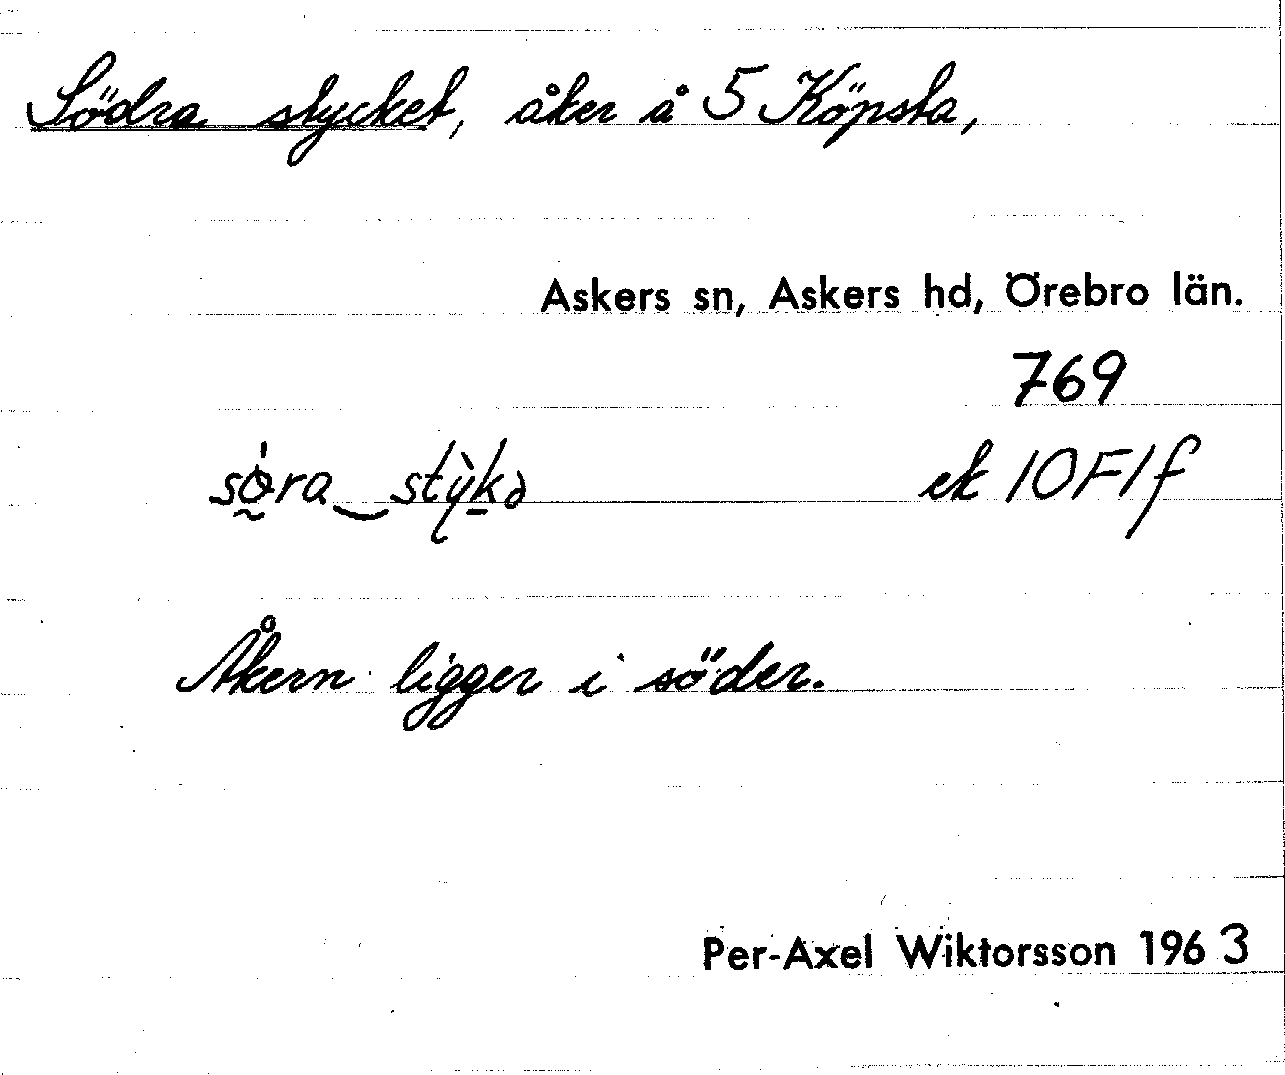 Södra stycket, åker å 5 Köpsta,
Askers sn, Askers hd, Örebro län.
769
ek 10F1f
Åkern ligger i söder.
Per-Axel Wiktorsson 1963